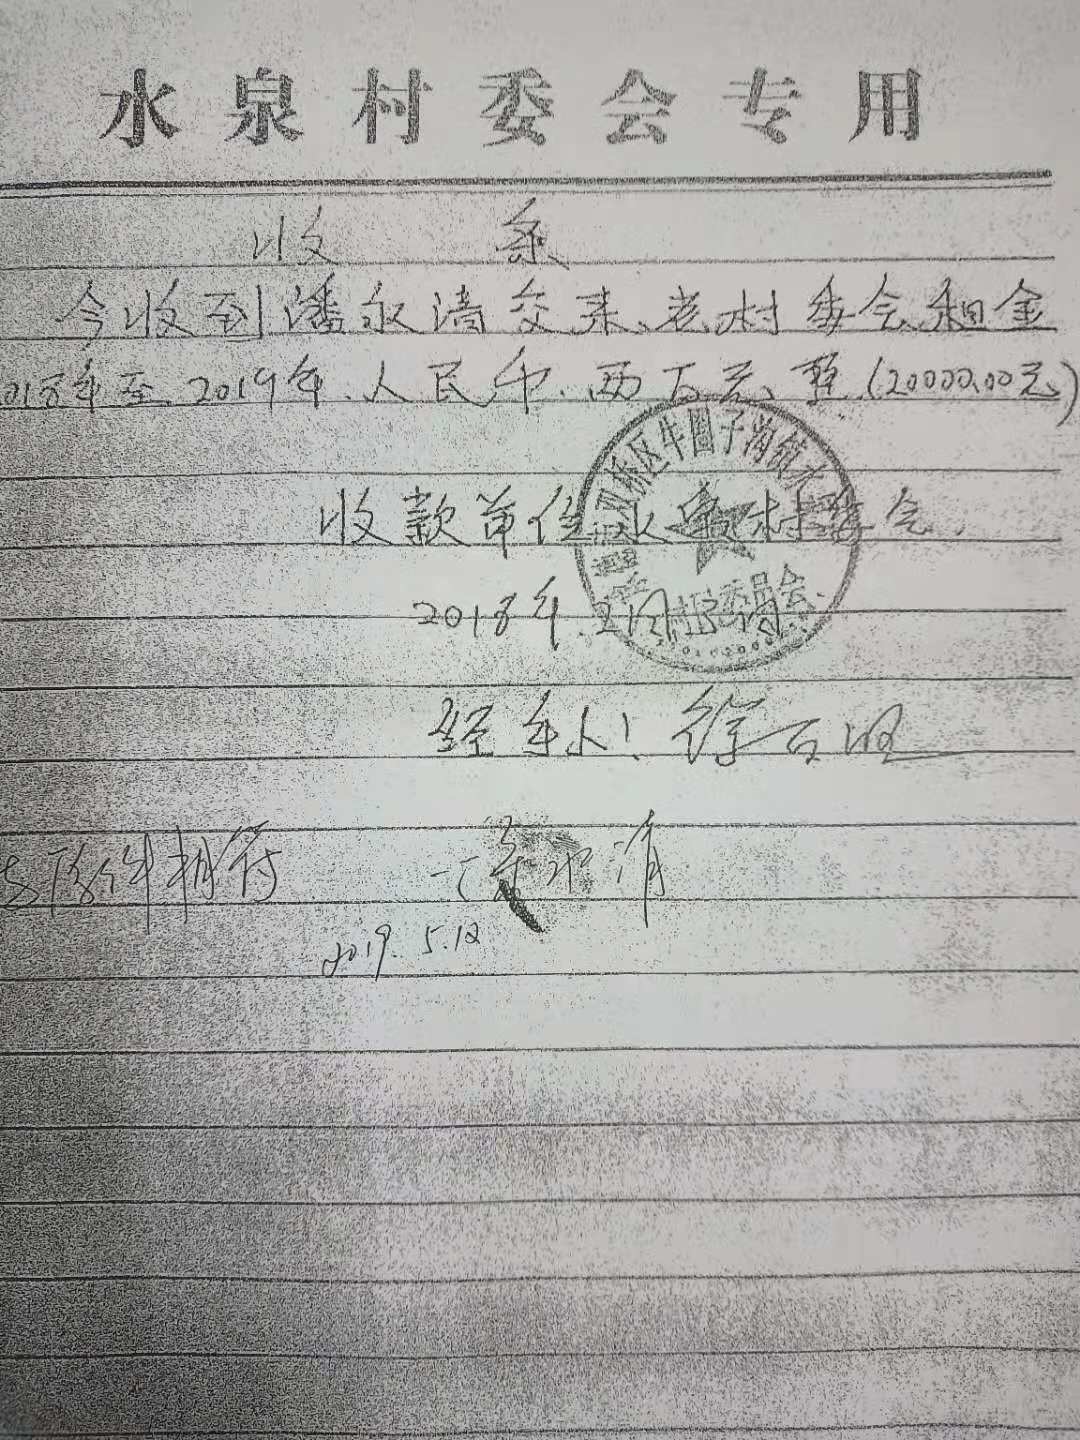 水泉村委会专用
收 条
今收到潘永清交来老村委会租金
018年至2019年人民币两万元整(20000.00元)
双桥区牛圈子沟镇水
收款单位水泉村委会
村民委员会
2018年
经手人:徐
与原件相符
2019.5.12